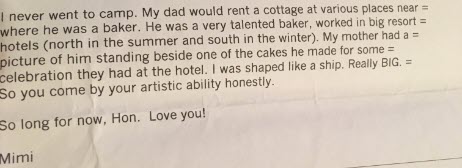 I never went to camp. My dad would rent a cottage at various places near =
where he was a baker. He was a very talented baker, worked in big resort =
hotels (north in the summer and south in the winter). My mother had a =
picture of him standing beside one of the cakes he made for some =
celebration they had at the hotel. I was shaped like a ship. Really BIG. =
So you come by your artistic ability honestly.
So long for now, Hon. Love you!
Mimi